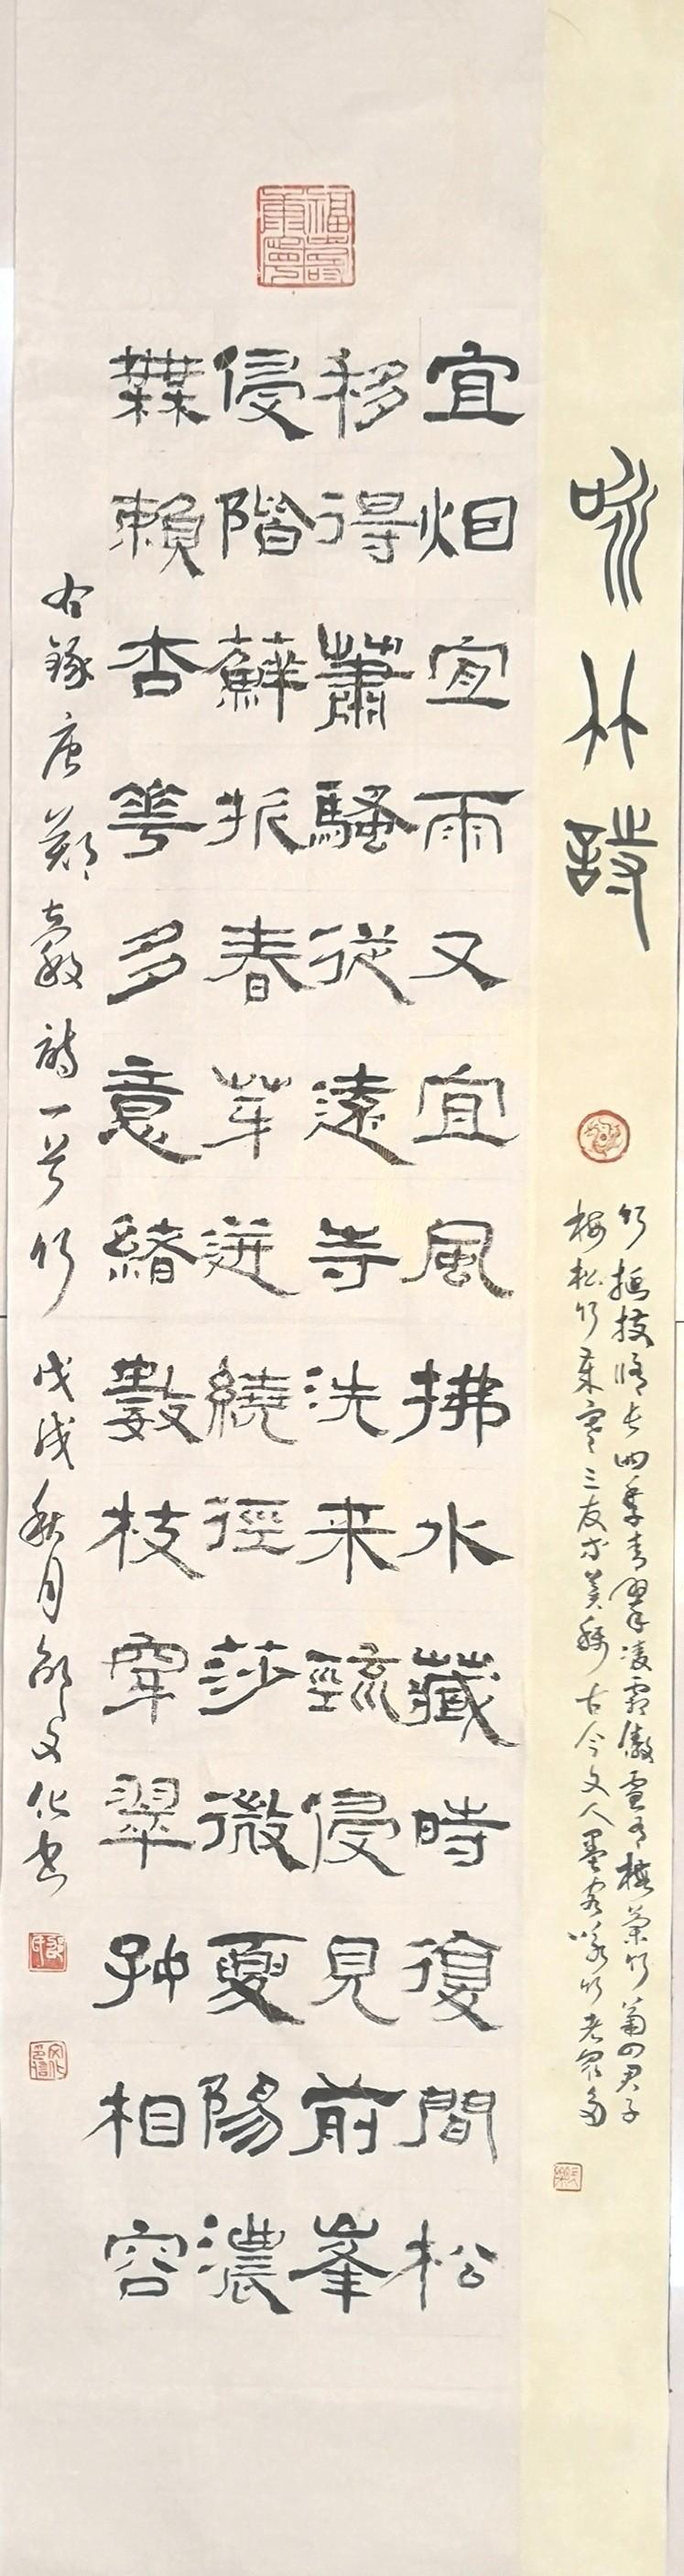 咏竹詩
竹挺拔脩長四季青翠凌霜傲雪有梅蘭竹菊四君子
梅松竹歲寒三友之美稱古今文人墨客咏竹者眾多
宜烟宜雨又宜風拂水藏時復間松
移得蕭騷從遠寺洗来疏侵見前峯
侵階蘚拆春芽迸繞徑莎微夏陽濃
無賴杏花多意緒數枝穿翠好相容
右錄唐鄭谷詩一首竹 戊戌秋月邵文化書
福壽康寧